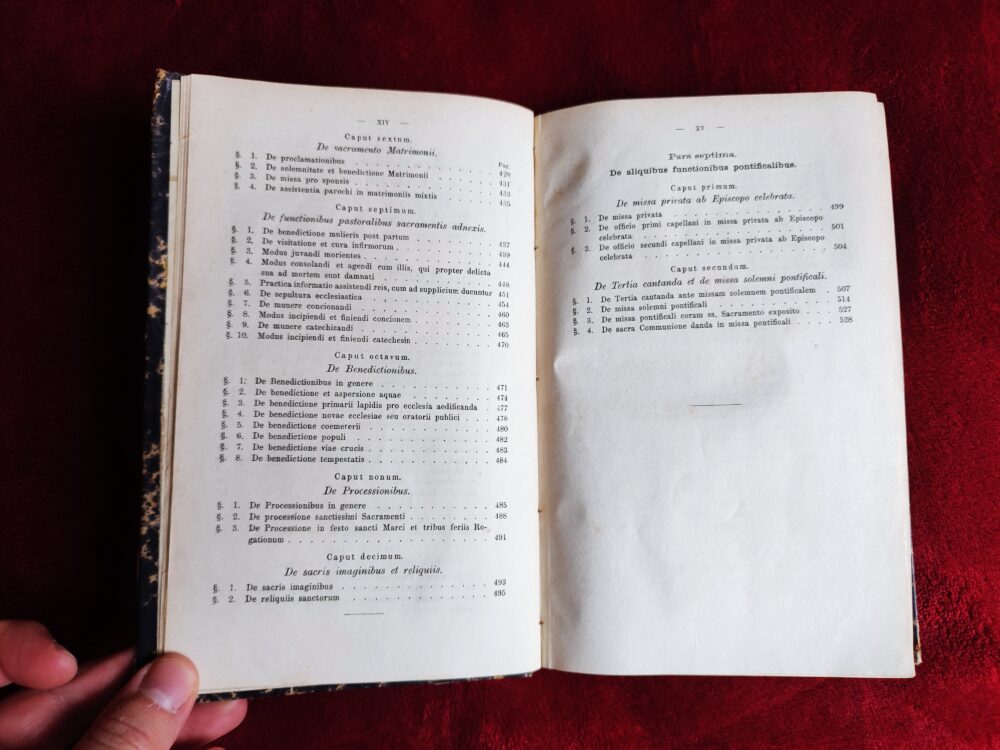 — XIV —
Caput sextum.
De sacramento Matrimonii.
Pag.
§. 1. De proclamationibus . . . . . . . . . . 428
§. 2. De solemnitate et benedictione Matrimonii . . . . . 431
§. 3. De missa pro sponsis . . . . . . . . . . 433
§. 4. De assistentia parochi in matrimoniis mixtis . . . . . 435
Caput septimum.
De functionibus pastoralibus sacramentis adnexis.
§. 1. De benedictione mulieris post partum . . . . . . 437
§. 2. De visitatione et cura infirmorum . . . . . . . 439
§. 3. Modus juvandi morientes . . . . . . . . . 444
§. 4. Modus consolandi et agendi cum illis, qui propter delicta
sua ad mortem sunt damnati . . . . . . . . 448
§. 5. Practica informatio assistendi reis, cum ad supplicium ducuntur 451
§. 6. De sepultura ecclesiastica . . . . . . . . . 454
§. 7. De munere concionandi . . . . . . . . . . 460
§. 8. Modus incipiendi et finiendi concionem . . . . . . 463
§. 9. De munere catechizandi . . . . . . . . . 465
§. 10. Modus incipiendi et finiendi catechesin . . . . . . 470
Caput octavum.
De Benedictionibus.
§. 1. De Benedictionibus in genere . . . . . . . . 471
§. 2. De benedictione et aspersione aquae . . . . . . 474
§. 3. De benedictione primarii lapidis pro ecclesia aedificanda . 477
§. 4. De benedictione novae ecclesiae seu oratorii publici . . . 478
§. 5. De benedictione coemeterii . . . . . . . . 480
§. 6. De benedictione populi . . . . . . . . . 482
§. 7. De benedictione viae crucis . . . . . . . . . 483
§. 8. De benedictione tempestatis . . . . . . . . . 484
Caput nonum.
De Processionibus.
§. 1. De Processionibus in genere . . . . . . . . 485
§. 2. De processione sanctissimi Sacramenti . . . . . . 488
§. 3. De Processione in festo sancti Marci et tribus feriis Ro-
gationum . . . . . . . . . . . . . 491
Caput decimum.
De sacris imaginibus et reliquiis.
§. 1. De sacris imaginibus . . . . . . . . . . 493
§. 2. De reliquiis sanctorum . . . . . . . . . . 495
— XV —
Pars septima.
De aliquibus functionibus pontificalibus.
Caput primum.
De missa privata ab Episcopo celebrata.
§. 1. De missa privata . . . . . . . . . . . 499
§. 2. De officio primi capellani in missa privata ab Episcopo
celebrata . . . . . . . . . . . . . 501
§. 3. De officio secundi capellani in missa privata ab Episcopo
celebrata . . . . . . . . . . . . . 504
Caput secundum.
De Tertia cantanda et de missa solemni pontificali.
§. 1. De Tertia cantanda ante missam solemnem pontificalem . 507
§. 2. De missa solemni pontificali . . . . . . . . 514
§. 3. De missa pontificali coram ss. Sacramento exposito . . . 527
§. 4. De sacra Communione danda in missa pontificali . . . 528